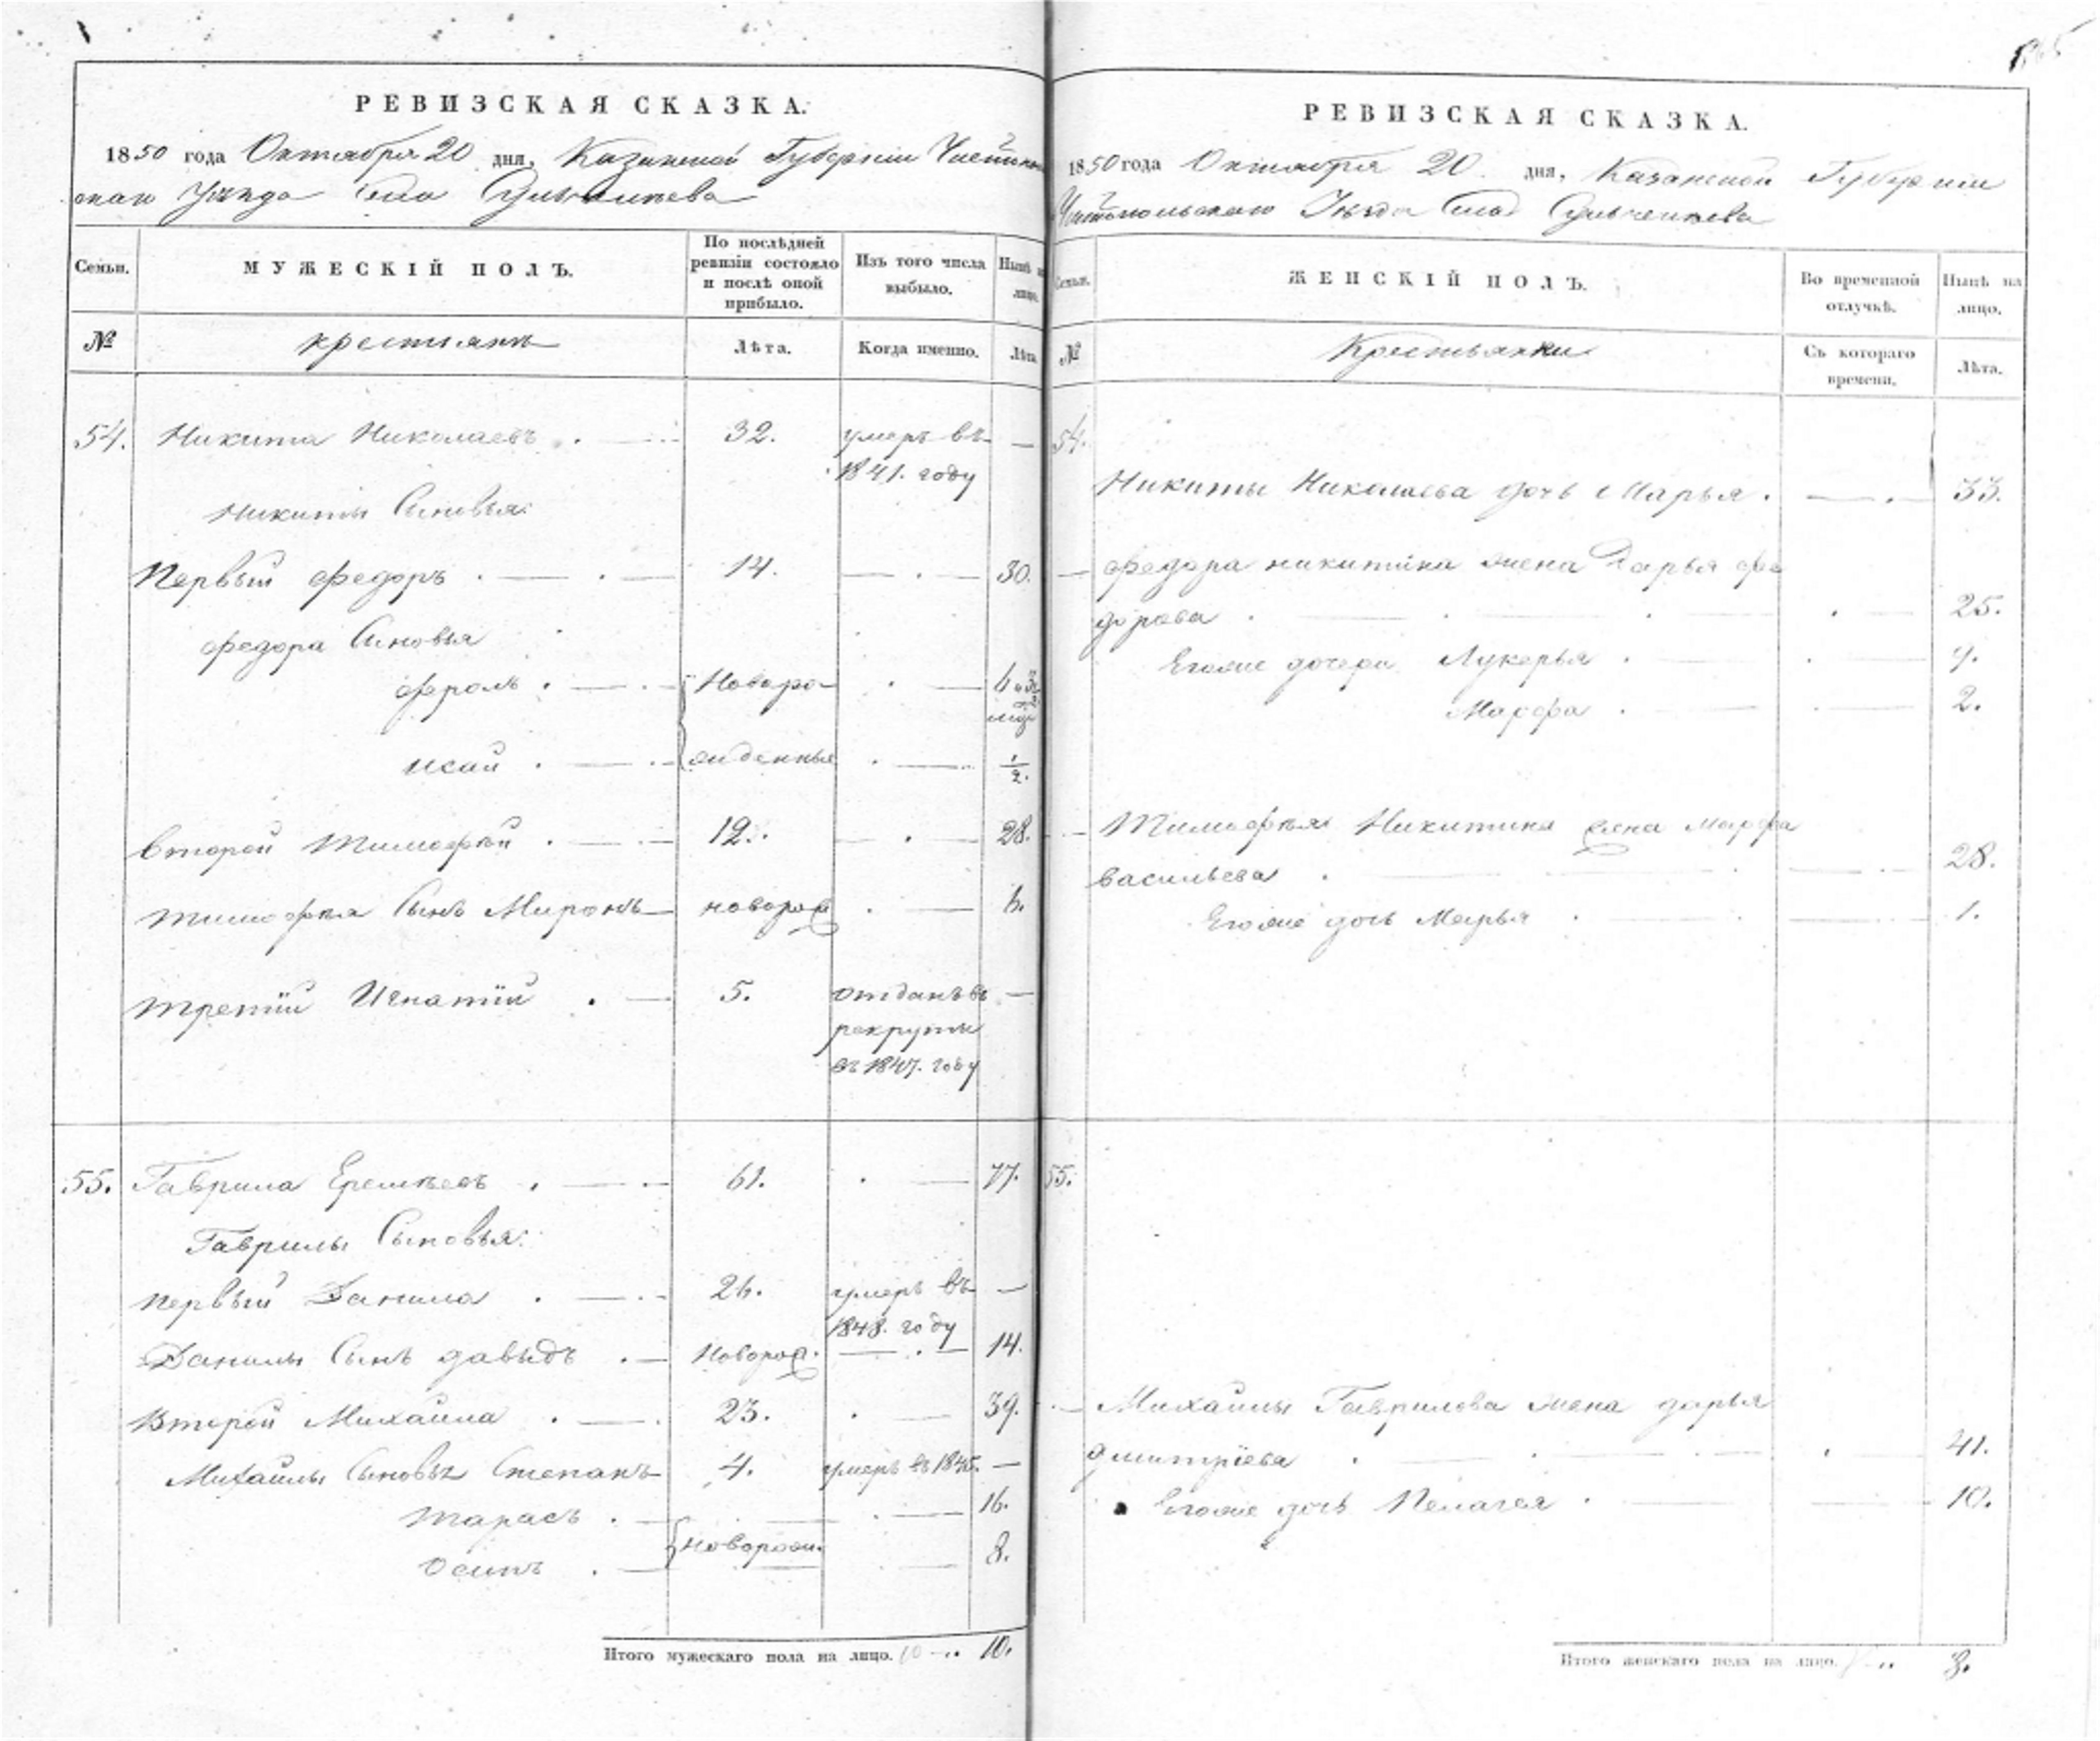 РЕВИЗСКАЯ СКАЗКА.
1850 года Октября 20 дня, Казанской Губернiи Чистополь
скаго Уѣзда Села
Семьи.
МУЖЕСКIЙ ПОЛЪ.
По послѣдней ревизiи состояло и послѣ оной прибыло.
Изъ того числа выбыло.
Нынѣ на лицо.
№
крестьянъ
Лѣта.
Когда именно.
Лѣта
54. Никита Николаевъ . — 32. умеръ въ —
1841. году
Никиты Сыновья:
Первый Федоръ . — . — 14. — . — 30.
Федора Сыновья
Фролъ . — Новоро . —
исай . — жденныя . — 1/2.
второй Тимофѣй . — 12. — . — 28.
Тимофѣя Сынъ Миронъ новорож . — 6.
третiй Игнатiй . — 5. отданъ въ —
рекруты
въ 1847. году
55. Гаврила Еремѣевъ . — 61. . — 77.
Гаврилы Сыновья:
первый Данила . — 26. умеръ въ —
1848. году
Данилы Сынъ давыдъ . — Новорож. — . — 14.
Второй Михайла . — 23. . — 39.
Михайлы Сыновья Степанъ 4. умеръ въ 1845. —
Тарасъ . — . — 16.
новорож.
Осипъ . — 8.
Итого мужескаго пола на лицо. 10 — 10.
РЕВИЗСКАЯ СКАЗКА.
1850 года Октября 20. дня, Казанской Губернiи
Чистопольскаго Уѣзда Села
Семьи.
ЖЕНСКIЙ ПОЛЪ.
Во временной отлучкѣ.
Нынѣ на лицо.
№
Крестьянки
Съ котораго времени.
Лѣта.
54.
Никиты Николаева дочь Марья . — . — 33.
— Федора никитина жена Дарья фе
дорова . — . — 25.
Егоже дочери Лукерья . — . — 9.
Марфа . — . — 2.
— Тимофѣя Никитина жена Марфа
васильева . — 28.
Егоже дочь Марья . — 1.
55.
— Михайлы Гаврилова жена дарья
дмитрiева . — . — 41.
Егоже дочь Пелагея . — 10.
Итого женскаго пола на лицо. 8.